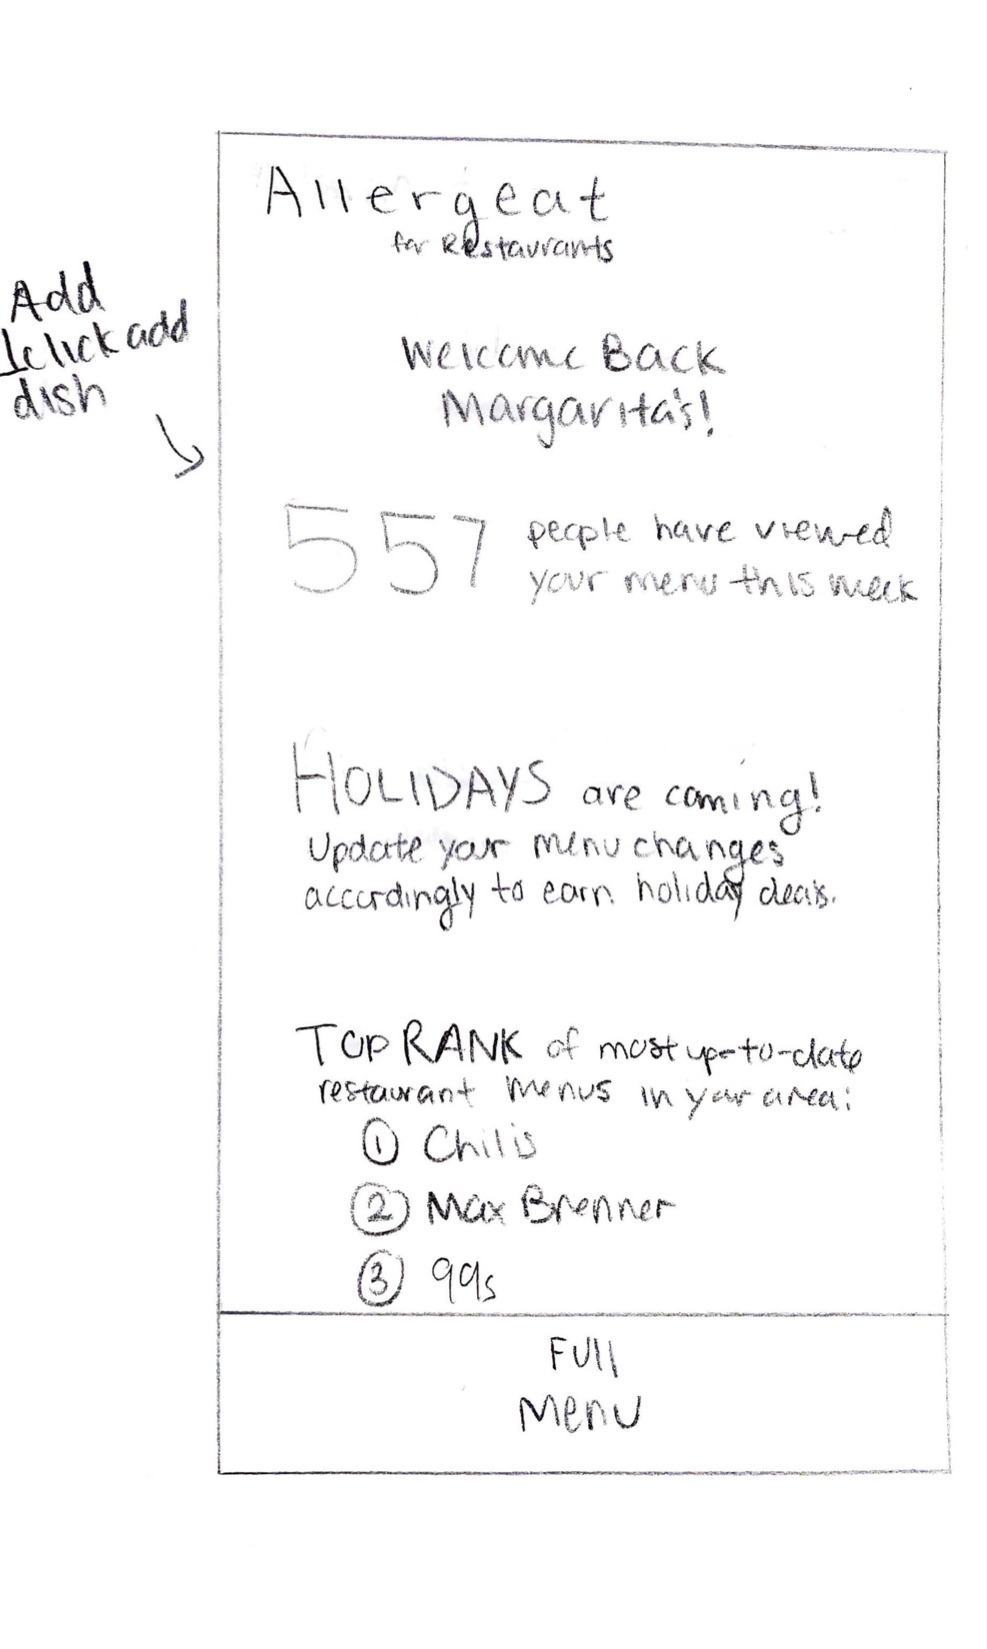 Allergeat
for Restaurants
Add
1click add
dish
Welcome Back
Margarita's!
557 people have viewed
your menu this week
HOLIDAYS are coming!
Update your menu changes
accordingly to earn holiday deals.
TOP RANK of most up-to-date
restaurant menus in your area:
1 Chilis
2 Max Brenner
3 99s
Full
Menu